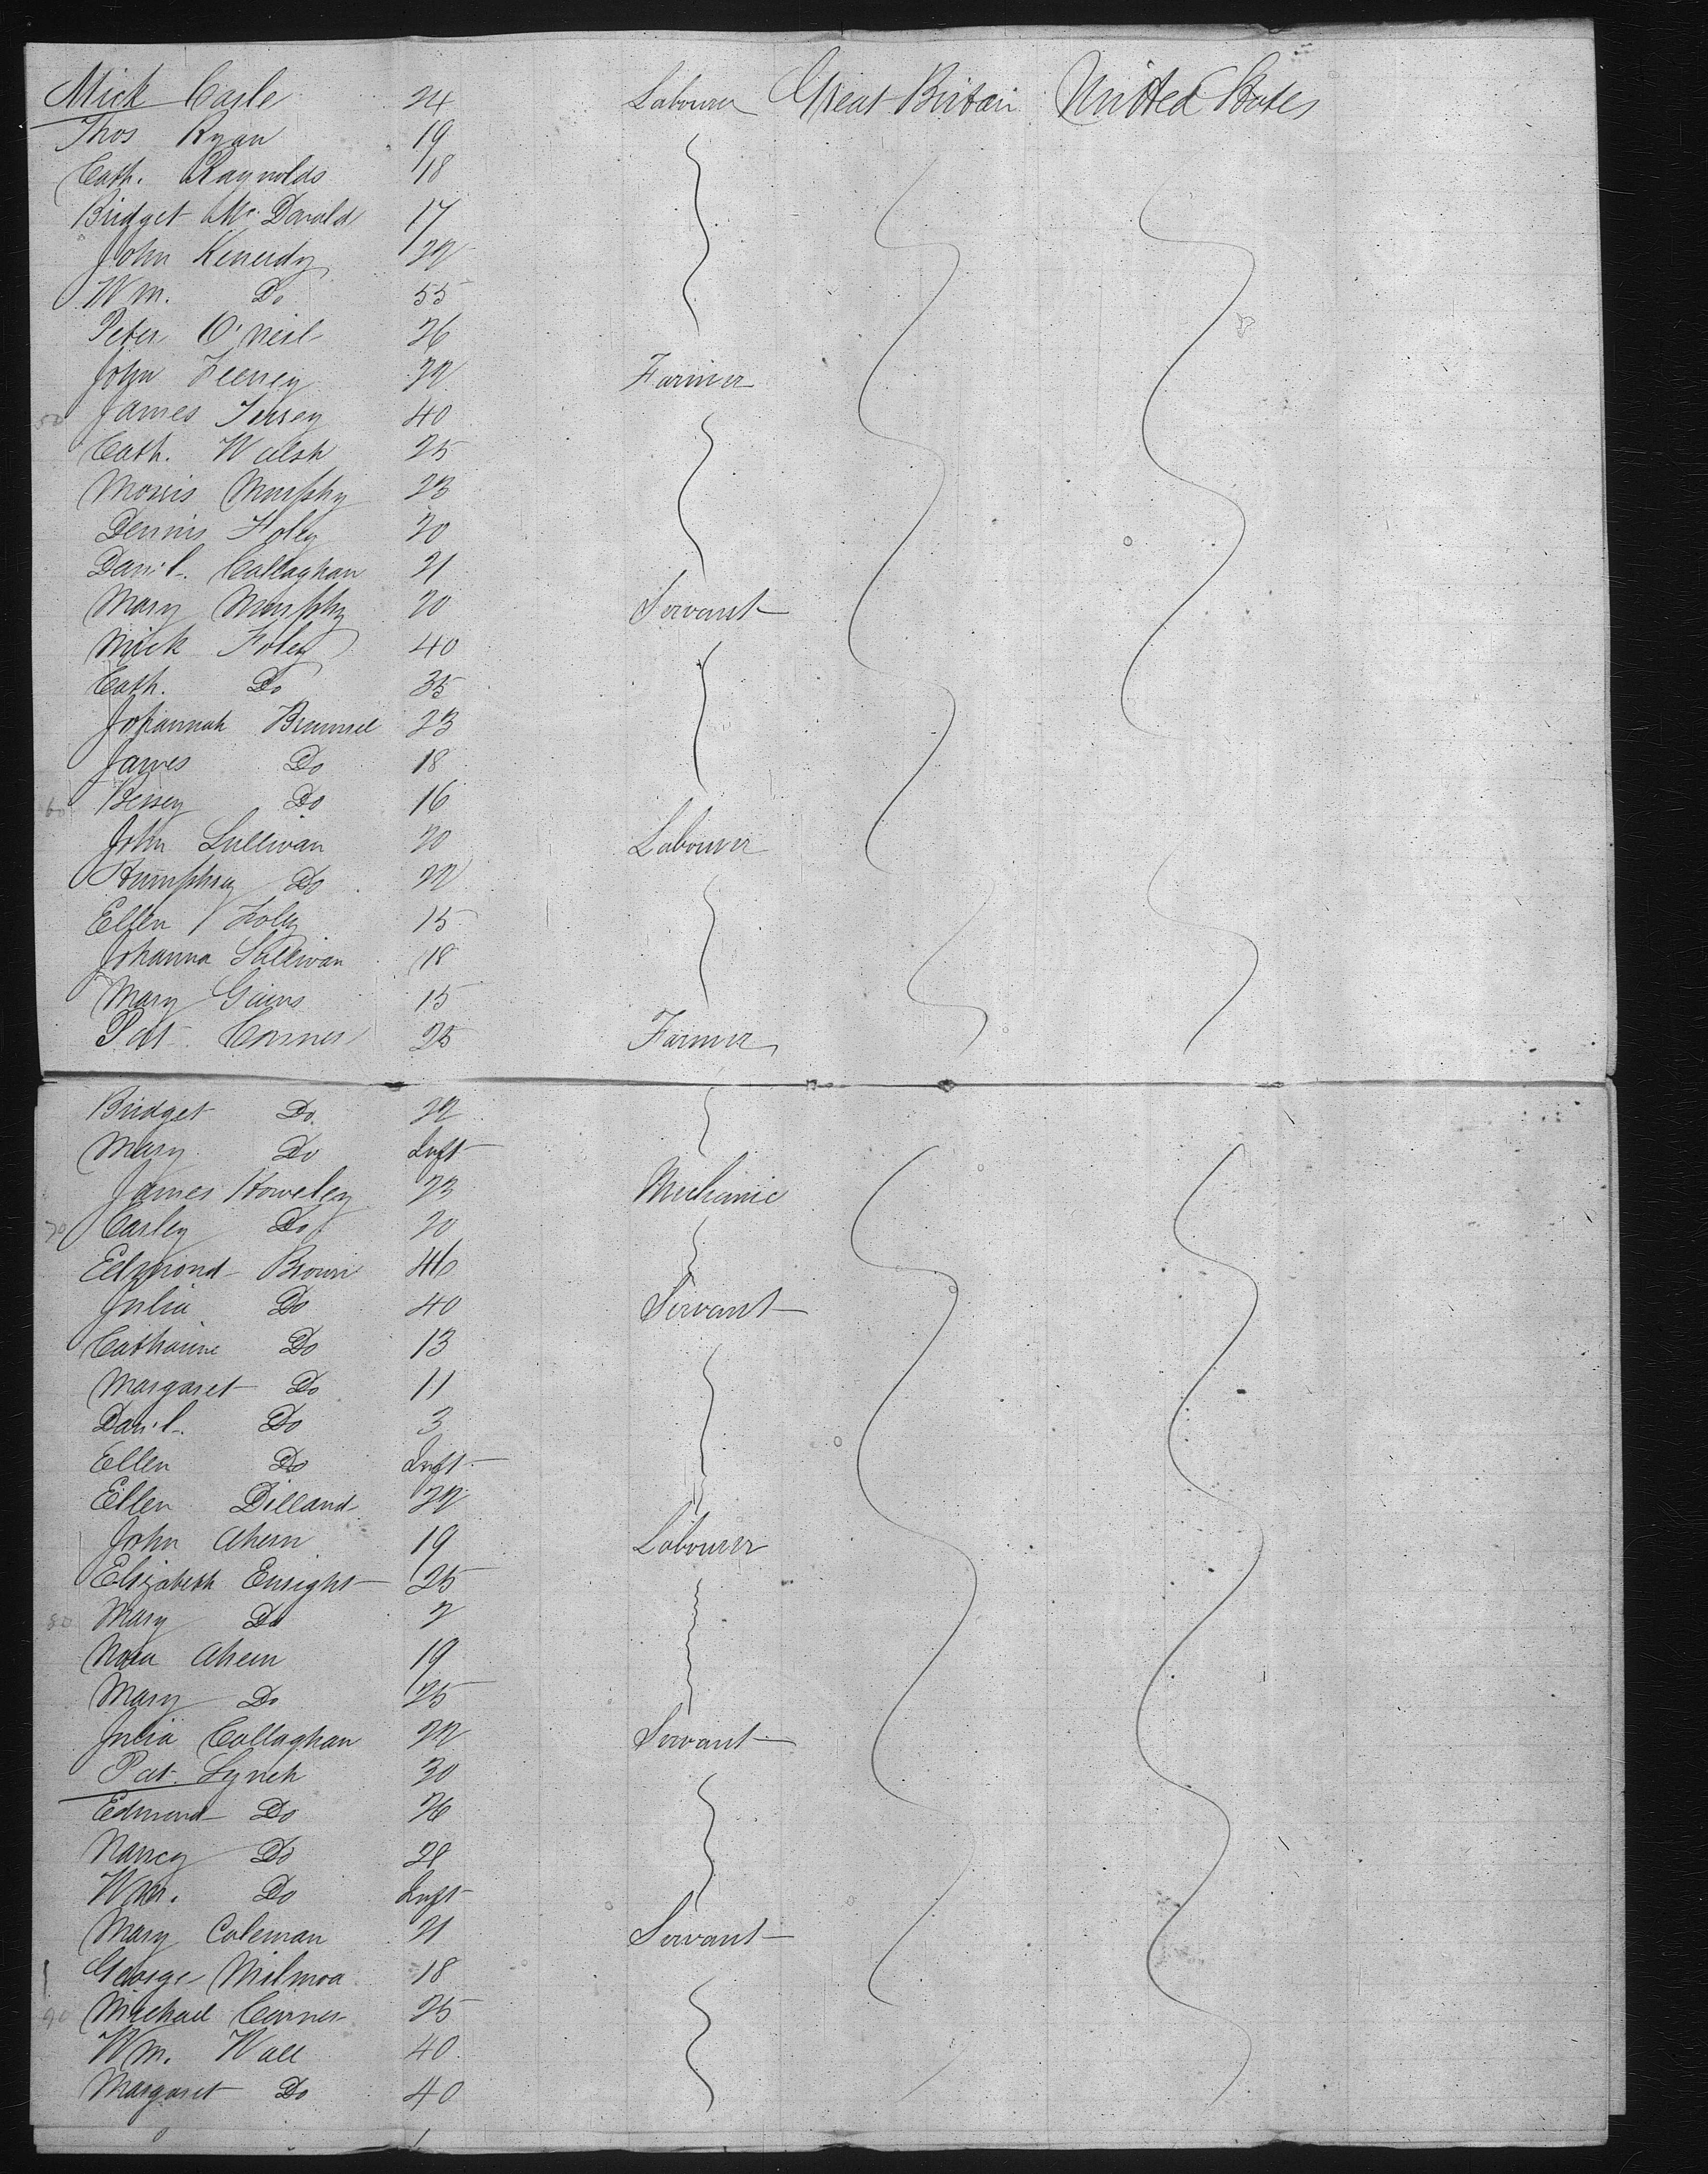 Mick Carle 24 Labourer Great Britain United States
Thos Ryan 19
Cath. Raynolds 18
Bridget Mc Donald 17
John Kenerdy 22
Wm. Do 55
Peter O'Neil 26
John Feeney 22 Farmer
50 James 40
Cath. Walsh 25
Morris Murphy 23
Dennis Foley 20
Danil. Callaghan 21
Mary Murphy 20 Servant
Mick Foley 40
Cath. Do 35
Johannah 23
James Do 18
60 Bessey Do 16
John Sullivan 20 Labourer
Humphrey Do 22
Ellen Foley 15
Johanna Sullivan 18
Mary Gains 15
Pat Connes 25 Farmer
Bridget Do 22
Mary Do Inft
James Howeley 23 Mechanic
70 Carley Do 20
Edmond Brown 46
Julia Do 40 Servant
Catharine Do 13
Margaret Do 11
Danil. Do 3
Ellen Do Inft
Ellen Dilland 22
John Ahern 19 Labourer
Elizabeth Enright 25
80 Mary Do 2
Nora Ahern 19
Mary Do 25
Julia Callaghan 22 Servant
Pat. Lynch 30
Edmond Do 26
Nancy Do 28
Wm. Do Inft
Mary Coleman 21 Servant
George Milmoa 18
90 Michael 25
Wm. Wall 40
Margaret Do 40